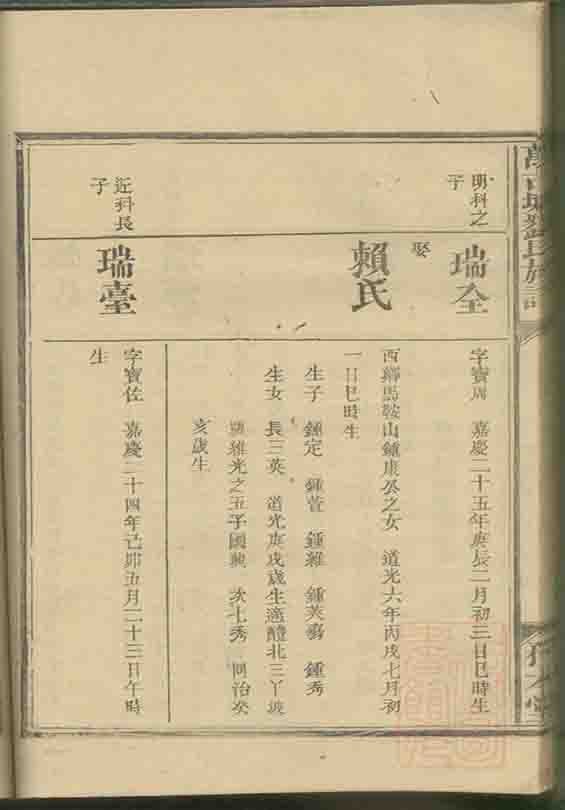 明科之
子
瑞全
字寶周 嘉慶二十五年庚辰二月初三日巳時生
娶
賴氏
西鄉馬鞍山鍾康公之女 道光六年丙戌七月初
一日巳時生
生子 鍾定 鍾萱 鍾維 鍾英 鍾秀
生女 長三英 道光庚戌歲生適醴北三丫坡
維光之五子國興 次七秀 同治癸
亥歲生
近科長
子
瑞臺
字寶佐 嘉慶二十四年己卯五月二十三日午時
生